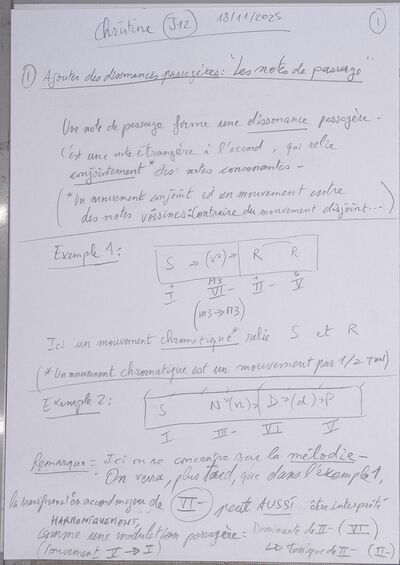 Christine (J12) 18/11/2025 (1)
(1) Ajouter des dissonances passagères: "Les notes de passage"
Une note de passage forme une dissonance passagère.
C'est une note étrangère à l'accord, qui relie
conjointement* des notes consonantes -
(*Un mouvement conjoint est un mouvement entre
des notes voisines: contraire du mouvement disjoint...)
Exemple 1:
S → (r) → R R
M3
I VI- II- V
(m3 → M3)
Ici un mouvement chromatique* relie S et R
(*Un mouvement chromatique est un mouvement par 1/2 TON)
Exemple 2:
S N → (n) → D → (d) → P
I III- VI V
Remarque = Ici on se concentre sur la mélodie -
On verra, plus tard, que dans l'exemple 1,
la transformation accord majeur de VI- peut AUSSI être interprété
HARMONIQUEMENT,
comme une modulation passagère = Dominante de II- (VI)
(Mouvement V → I) ↳ Tonique de II- (II-)